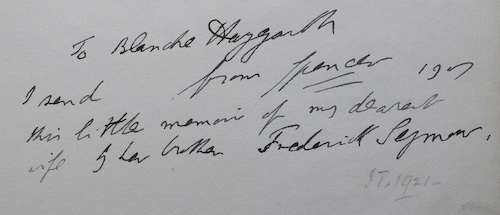 To Blanche Haygarth
from Spencer 1907
I send
this little memoir of my dearest
wife by her brother Frederick Seymour.
1921